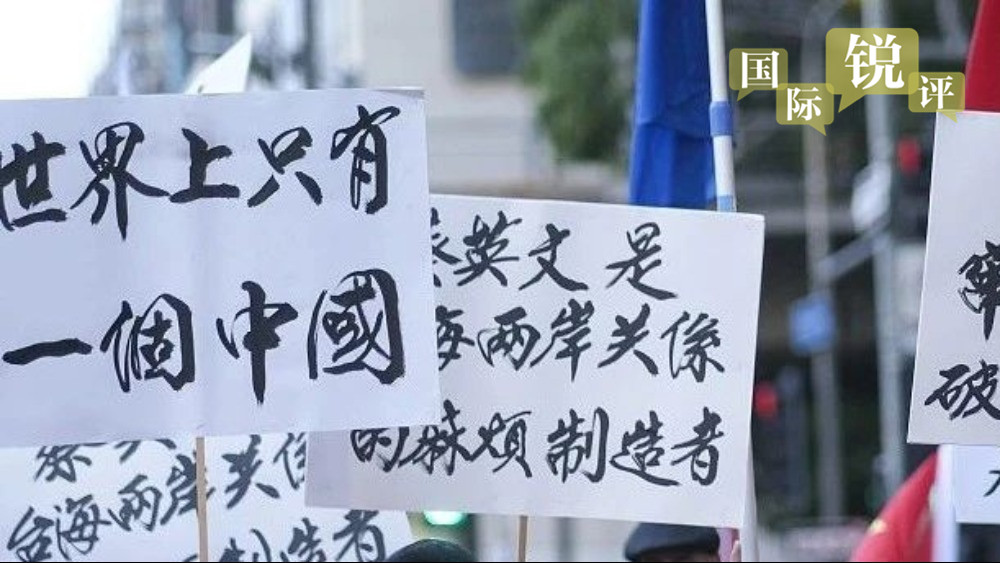 国际锐评
世界上只有
一個中國
蔡英文是
海两岸关係
的麻煩制造者
台海两岸关係
制造者
破